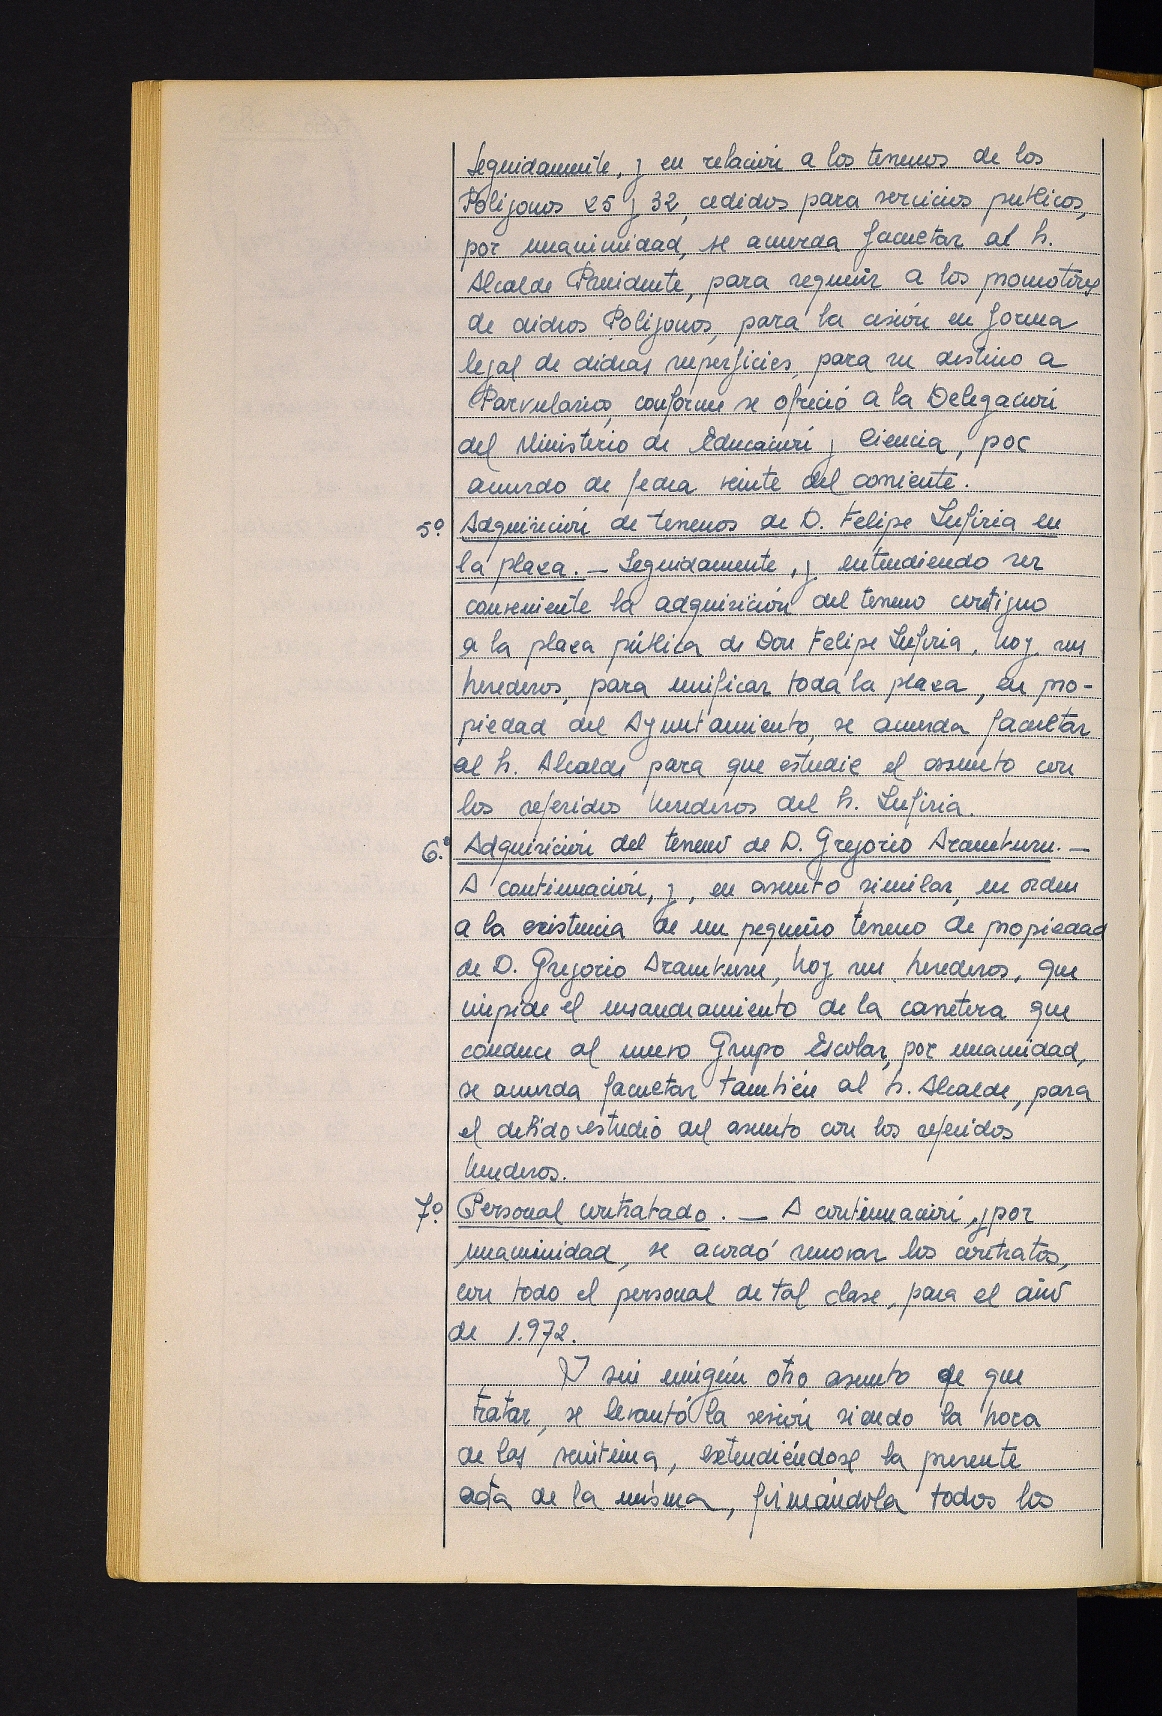 Seguidamente, y en relación a los terrenos de los
Polígonos 25 y 32, cedidos para servicios publicos,
por unanimidad, se acuerda facultar al Sr.
Alcalde Presidente, para requerir a los promotores
de dichos Poligonos, para la cesión en forma
legal de dichas superficies, para su destino a
Parvularios, conforme se ofreció a la Delegación
del Ministerio de Educación y Ciencia, por
acuerdo de fecha veinte del corriente.
5º Adquisición de terrenos de D. Felipe Lufiria en
la plaza. — Seguidamente, y entendiendo ser
conveniente la adquisición del terreno contiguo
a la plaza pública de Don Felipe Lufiria, hoy sus
herederos, para unificar toda la plaza, en pro-
piedad del Ayuntamiento, se acuerda facultar
al Sr. Alcalde para que estudie el asunto con
los referidos herederos del Sr. Lufiria.
6.º Adquisición del terreno de D. Gregorio Aramburu. —
A continuación, y, en asunto similar, en orden
a la existencia de un pequeño terreno de propiedad
de D. Gregorio Aramburu, hoy sus herederos, que
impide el ensanchamiento de la carretera que
conduce al nuevo Grupo Escolar, por unamidad,
se acuerda facultar también al Sr. Alcalde, para
el debido estudio del asunto con los referidos
herederos.
7º Personal contratado. — A continuación, y por
unanimidad, se acordó renovar los contratos,
con todo el personal de tal clase, para el año
de 1.972.
Y sin ningún otro asunto de que
tratar, se levantó la sesión siendo la hora
de las veintiuna, extendiéndose la presente
acta de la misma, firmándola todos los